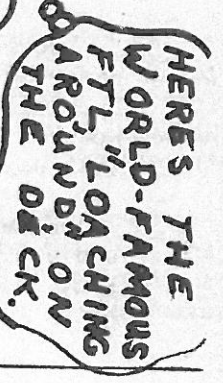 HERES THE
WORLD-FAMOUS
FTL "LOACHING
AROUND" ON
THE DECK.